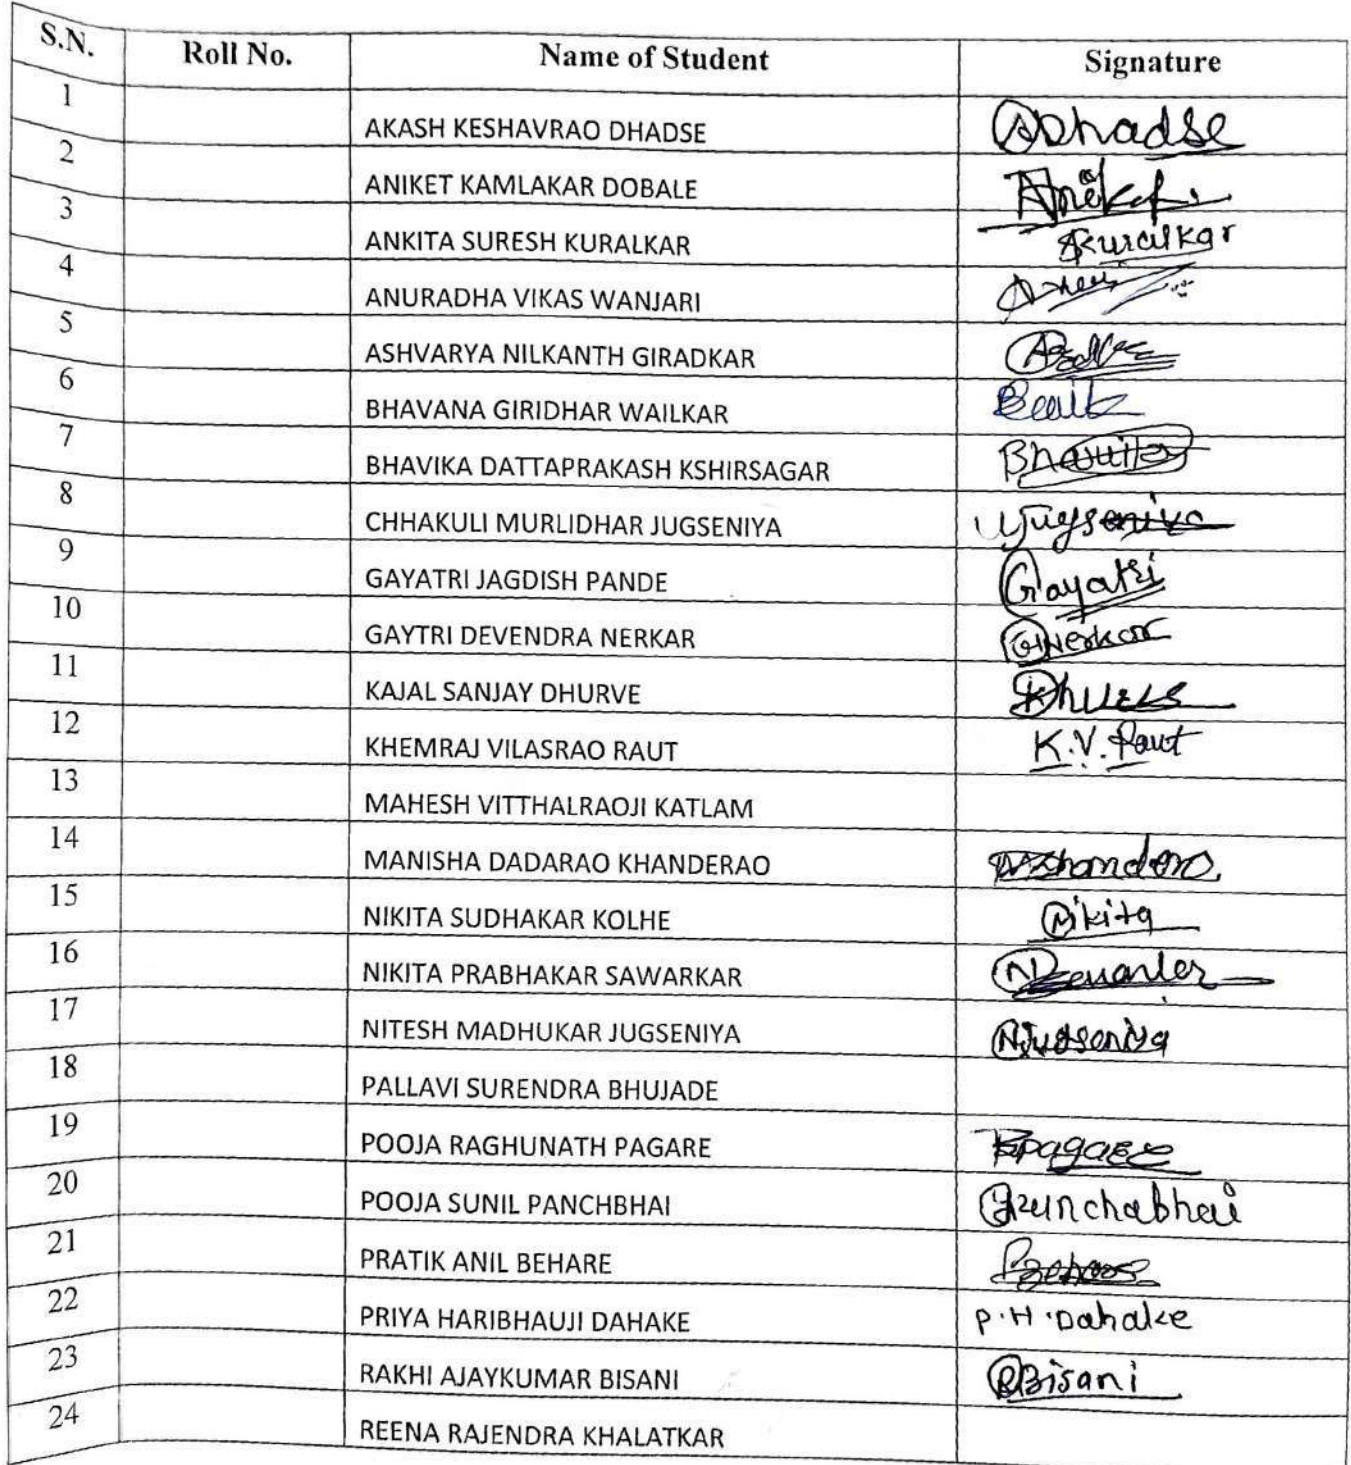 S.N. Roll No. Name of Student Signature
1 AKASH KESHAVRAO DHADSE ADhadse
2 ANIKET KAMLAKAR DOBALE Aniket
3 ANKITA SURESH KURALKAR Akuralkar
4 ANURADHA VIKAS WANJARI
5 ASHVARYA NILKANTH GIRADKAR
6 BHAVANA GIRIDHAR WAILKAR
7 BHAVIKA DATTAPRAKASH KSHIRSAGAR Bhavika
8 CHHAKULI MURLIDHAR JUGSENIYA Jugseniya
9 GAYATRI JAGDISH PANDE Gayatri
10 GAYTRI DEVENDRA NERKAR GNerkar
11 KAJAL SANJAY DHURVE
12 KHEMRAJ VILASRAO RAUT K.V. Raut
13 MAHESH VITTHALRAOJI KATLAM
14 MANISHA DADARAO KHANDERAO
15 NIKITA SUDHAKAR KOLHE Nikita
16 NIKITA PRABHAKAR SAWARKAR
17 NITESH MADHUKAR JUGSENIYA NJugseniya
18 PALLAVI SURENDRA BHUJADE
19 POOJA RAGHUNATH PAGARE
20 POOJA SUNIL PANCHBHAI
21 PRATIK ANIL BEHARE
22 PRIYA HARIBHAUJI DAHAKE P.H.Dahake
23 RAKHI AJAYKUMAR BISANI RBisani
24 REENA RAJENDRA KHALATKAR